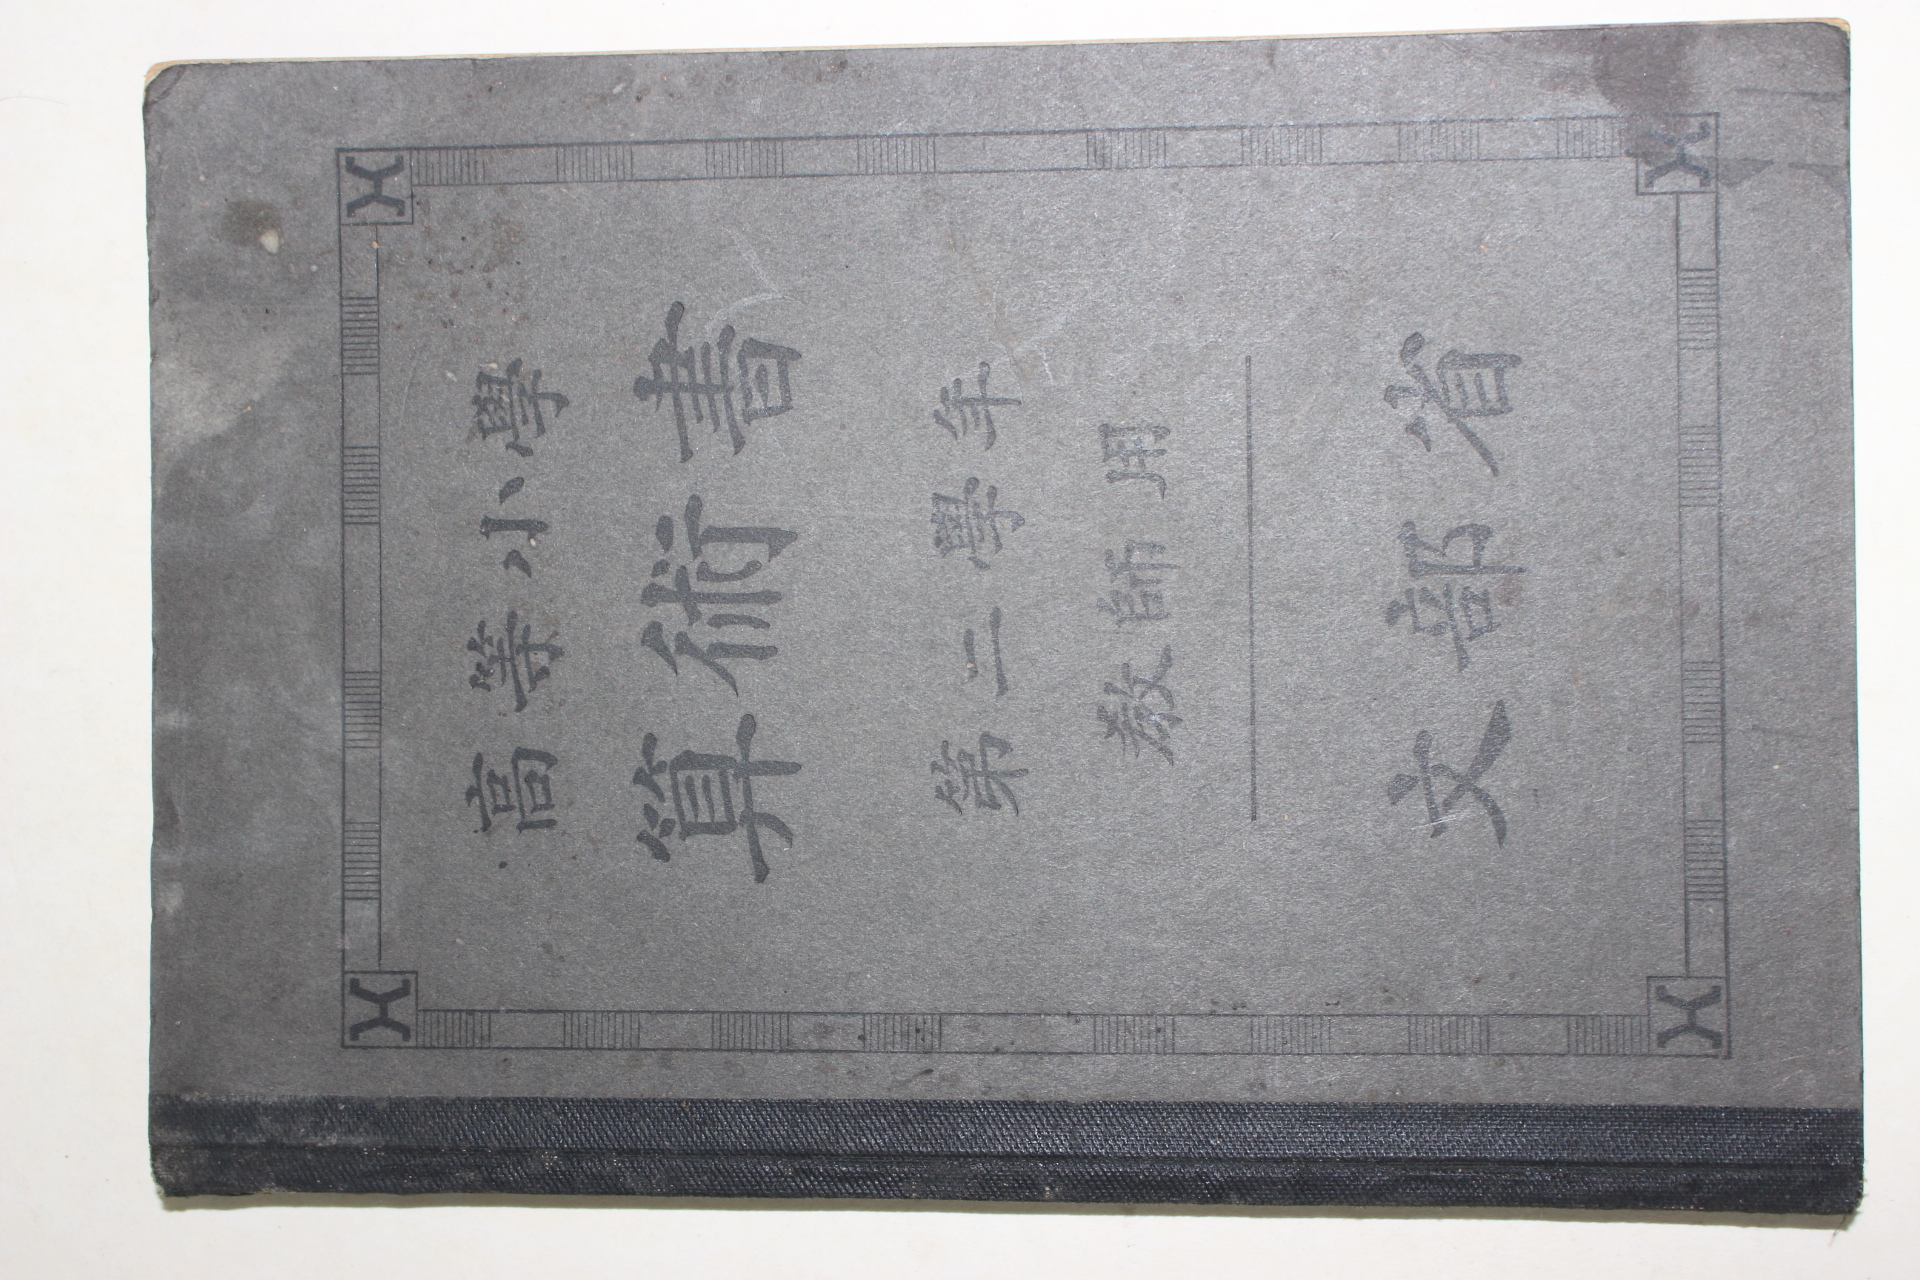 高等小學
算術書
第二學年
教師用
文部省